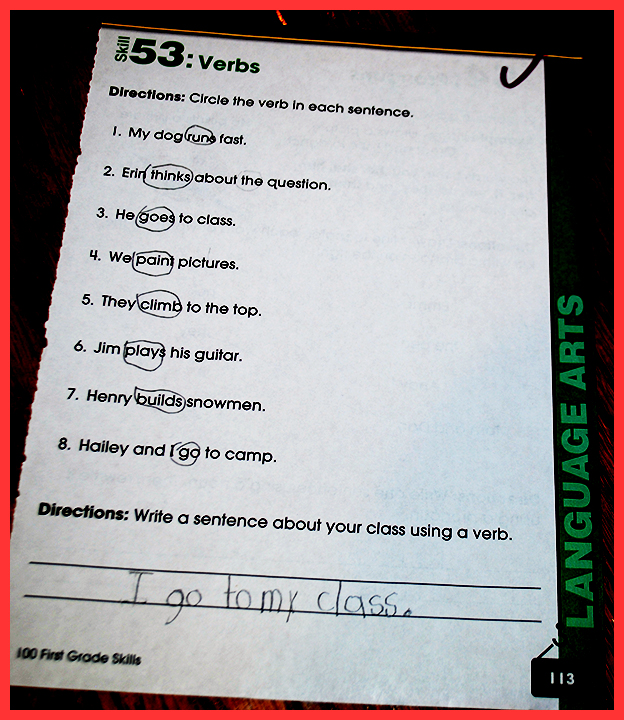 Skill 53: Verbs
Directions: Circle the verb in each sentence.
1. My dog runs fast.
2. Erin thinks about the question.
3. He goes to class.
4. We paint pictures.
5. They climb to the top.
6. Jim plays his guitar.
7. Henry builds snowmen.
8. Hailey and I go to camp.
Directions: Write a sentence about your class using a verb.
I go to my class.
100 First Grade Skills
113
LANGUAGE ARTS